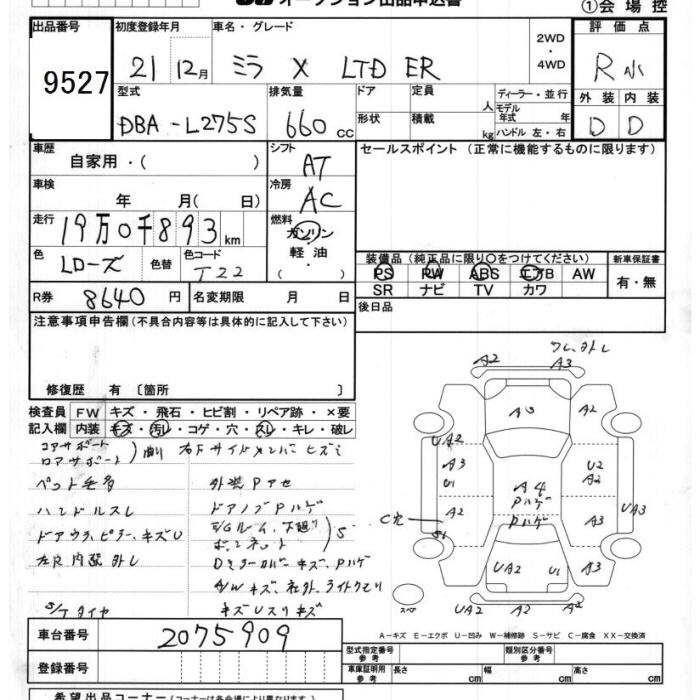 オークション出品申込書
①会場控
出品番号 初度登録年月 車名・グレード 評価点
9527 21 12月 ミラ X LTD ER 2WD・4WD R
型式 排気量 ドア 定員 人 ディーラー・並行 外装 内装
DBA-L275S 660cc 形状 積載 kg モデル年式 年 ハンドル 左・右 D D
車歴 自家用・( ) シフト AT セールスポイント (正常に機能するものに限ります)
車検 年 月( 日) 冷房 AC
走行 19万0千893km 燃料 ガソリン・軽油・( )
色 Lローズ 色替 色コード T22
装備品 (純正品に限り○をつけてください) 新車保証書
PS PW ABS エアB AW 有・無
SR ナビ TV カワ
R券 8640円 名変期限 月 日 後日品
注意事項申告欄(不具合内容等は具体的に記入して下さい)
修復歴 有 〔箇所 〕
検査員記入欄 FW キズ・飛石・ヒビ割・リペア跡・×要
内装 キズ・汚レ・コゲ・穴・スレ・キレ・破レ
コアサポート
ロアサポート
右下サイドメンバーヒズミ
ペット毛多
外装Pアセ
ハンドルスレ
ドアノブPハゲ
ドアウラ、ピラーキズU
S
左R内装外レ
DミラーカバーキズPハゲ
A/Wキズ、社外、ライトクモリ
S/Tタイヤ
キズUスリキズ
A2 A3
A3 A2
UA2
A3 U1
U2 A2
A4
Pハゲ
Pハゲ
A2 A3 UA3
C穴
S1
UA2 U1 A3
スペア
UA2 A2 A2
A-キズ E-エクボ U-凹み W-補修跡 S-サビ C-腐食 XX-交換済
車台番号 2075909
登録番号
型式指定番号 参考 類別区分番号 参考
車庫証明用 参考 長さ cm 幅 cm 高さ cm
希望出品コーナー(コーナーは各会場により異なります)